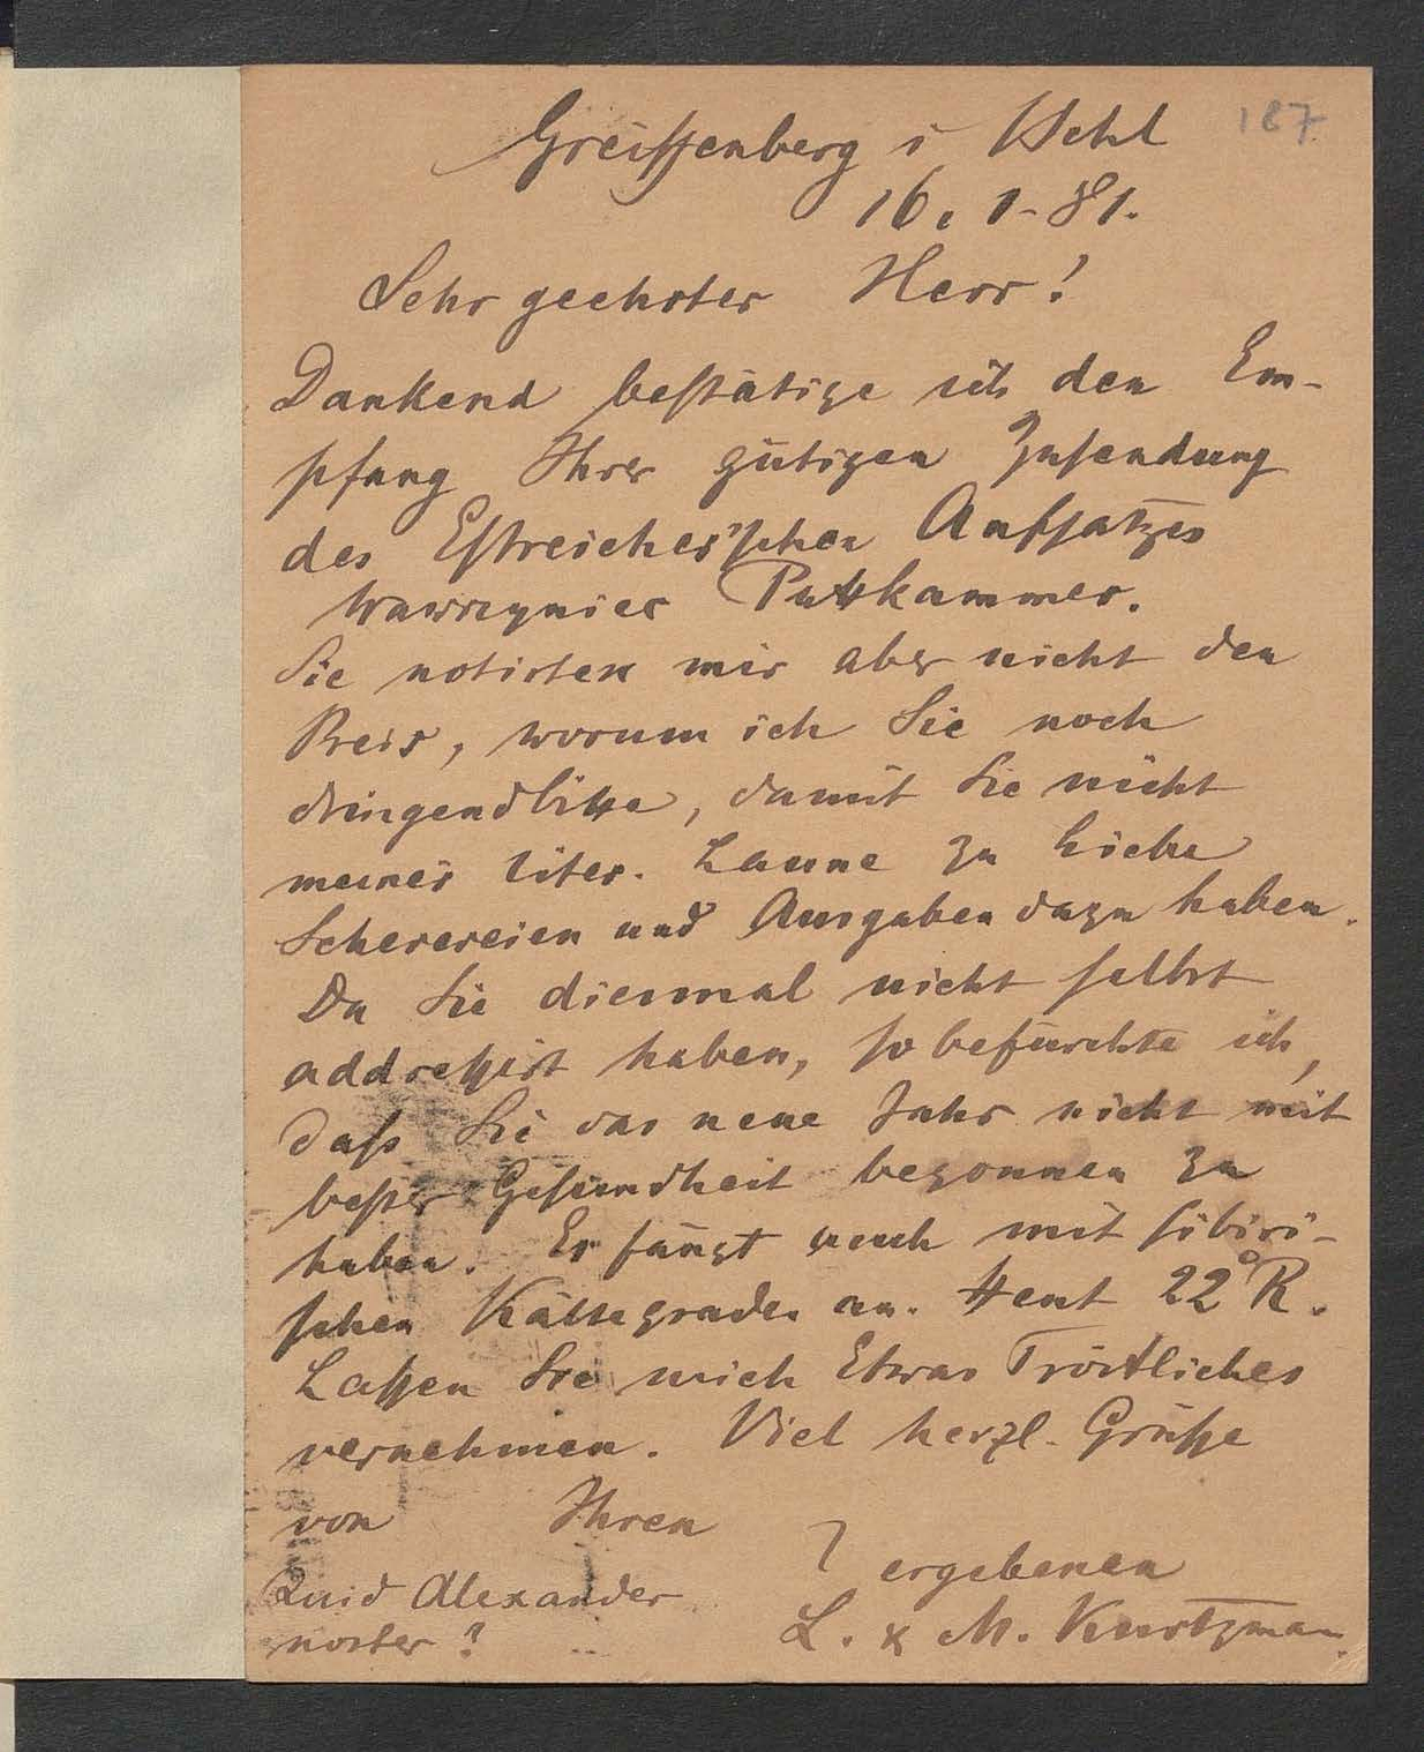 187
Greiffenberg i Uckl
16. 1. 81.
Sehr geehrter Herr!
Dankend bestätige ich den Em-
pfang Ihrer gütigen Zusendung
des Estreicher'schen Aufsatzes
Wawrzyniec Puttkammer.
Sie notirten mir aber nicht den
Preis, worum ich Sie noch
dringend bitte, damit Sie nicht
meiner liter. Laune zu Liebe
Scherereien und Ausgaben dazu haben.
Da Sie diesmal nicht selbst
addressirt haben, so befürchte ich,
dass Sie das neue Jahr nicht mit
bester Gesundheit begonnen zu
haben. Es fängt auch mit sibiri-
schen Kältegraden an. Heut 22° R.
Lassen Sie mich Etwas Tröstliches
vernehmen. Viel herzl. Grüsse
von Ihren
ergebenen
L. & M. Kurtzmann
Quid Alexander
noster?